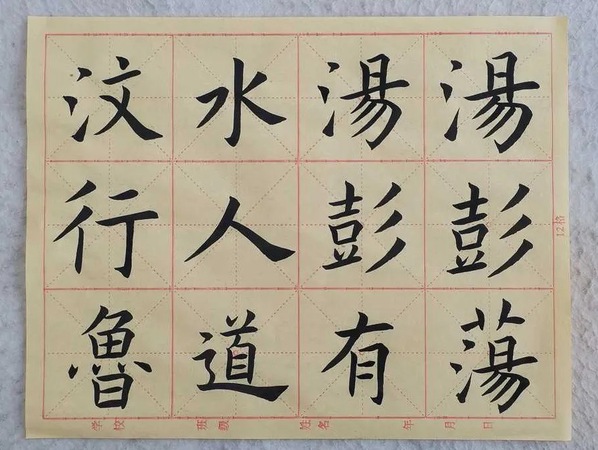 汶水湯湯
行人彭彭
魯道有蕩
12格
学校 班级 姓名 年 月 日